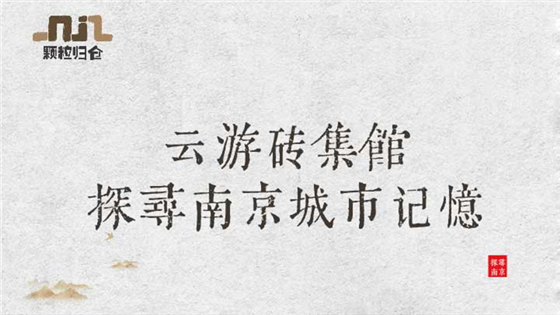 颗粒归仓
云游砖集館
探尋南京城市记憶
探尋
南京